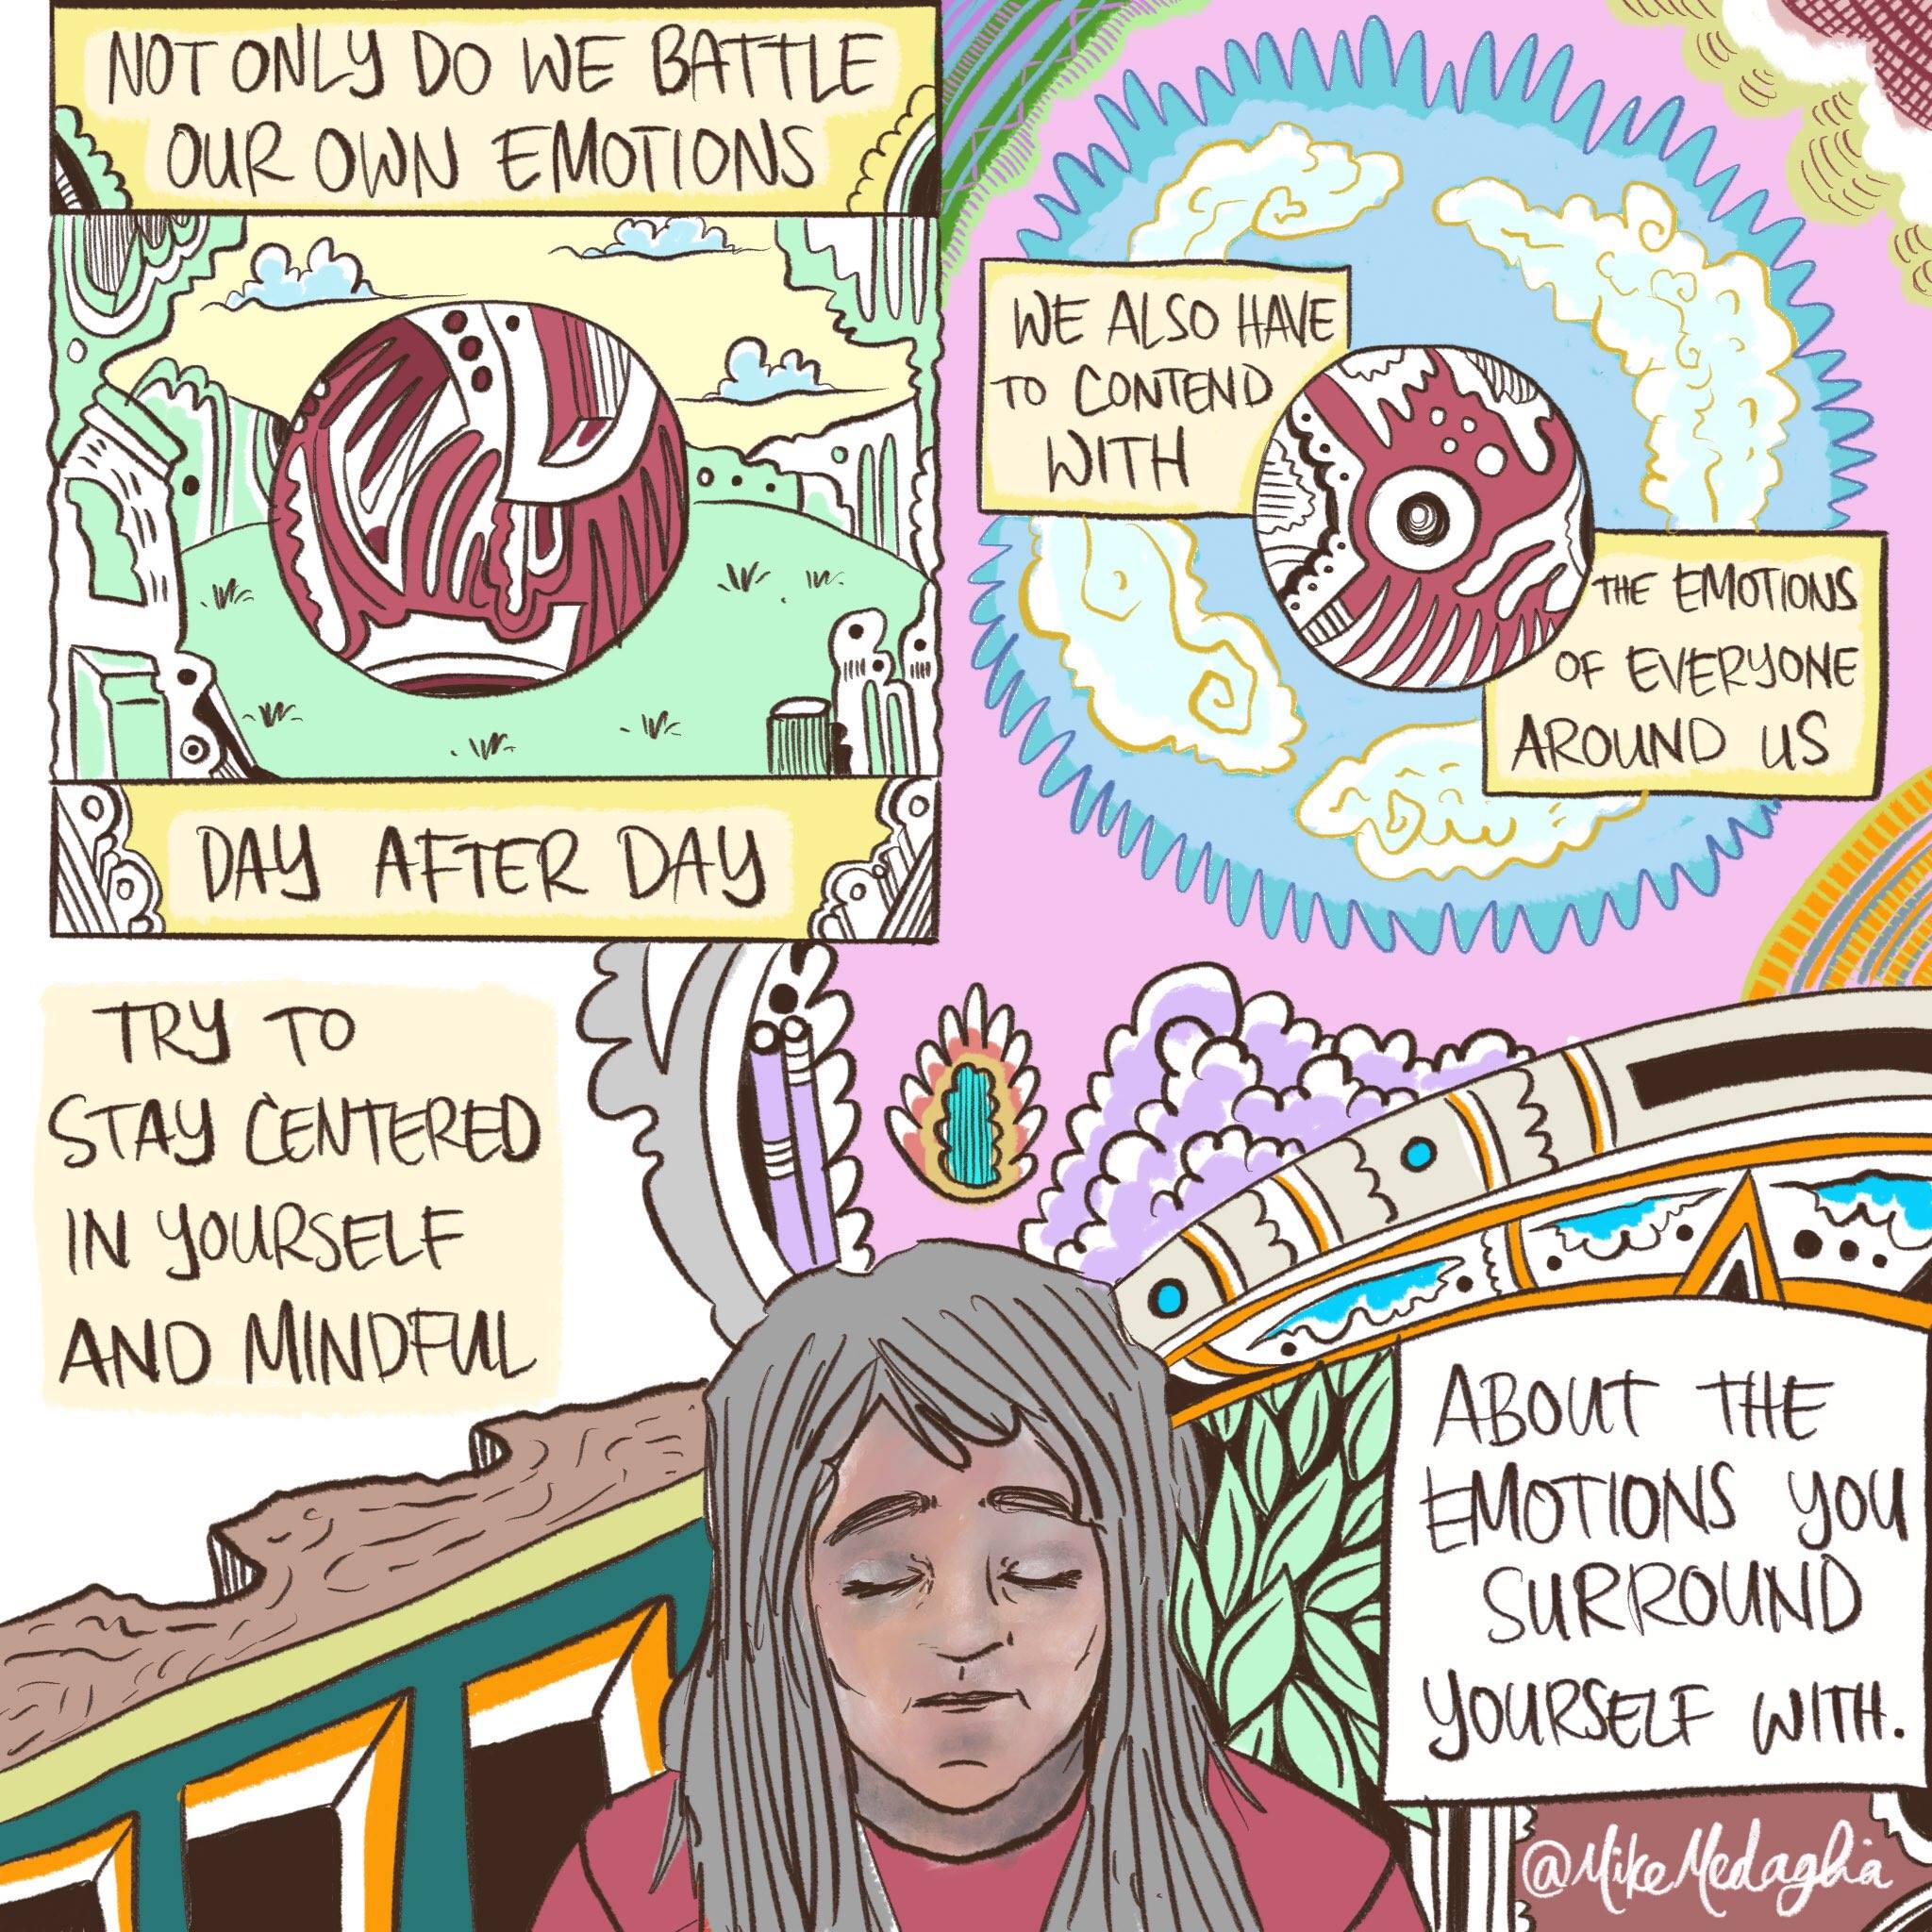 NOT ONLY DO WE BATTLE
OUR OWN EMOTIONS
DAY AFTER DAY
WE ALSO HAVE
TO CONTEND
WITH
THE EMOTIONS
OF EVERYONE
AROUND US
TRY TO
STAY CENTERED
IN YOURSELF
AND MINDFUL
ABOUT THE
EMOTIONS YOU
SURROUND
YOURSELF WITH.
@MikeMedaglia